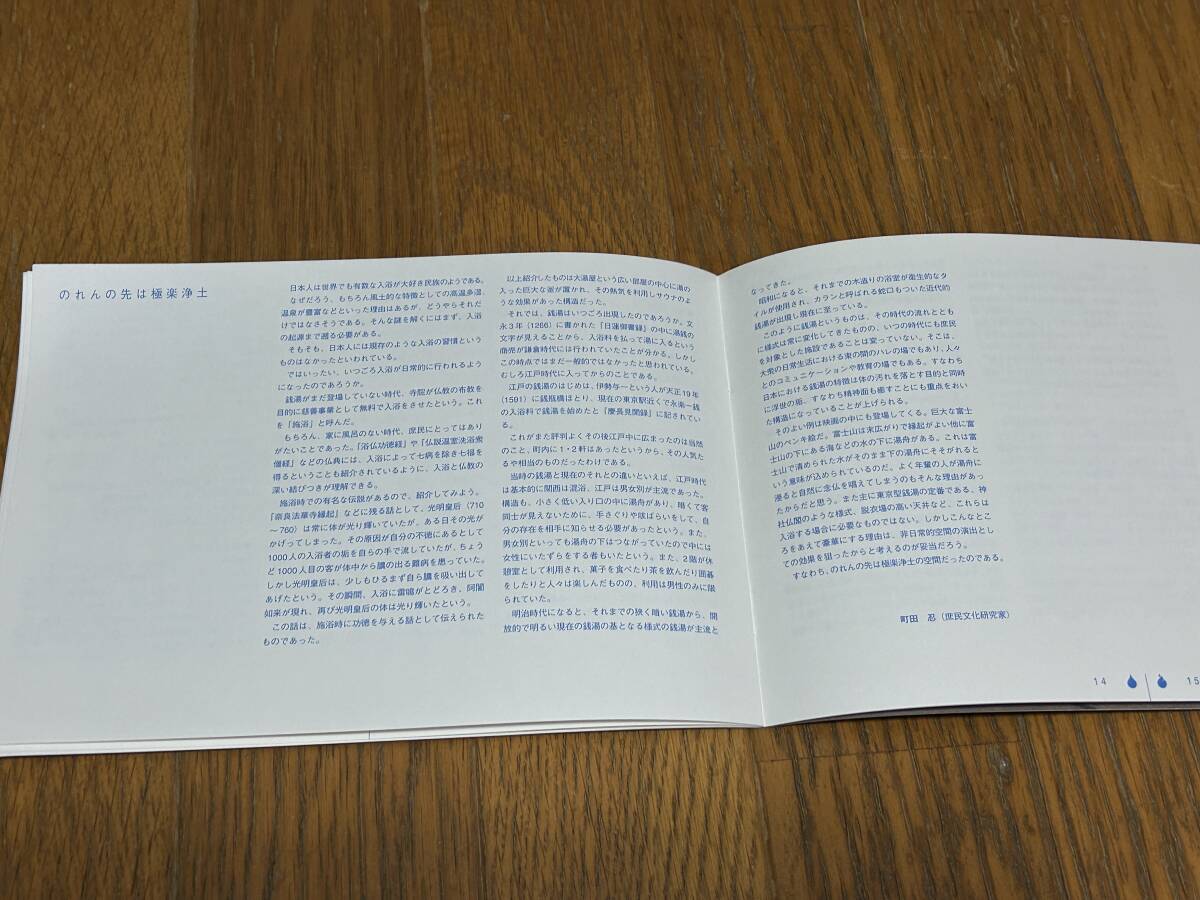 のれんの先は極楽浄土
日本人は世界でも有数な入浴が大好き民族のようである。
なぜだろう、もちろん風土的な特徴としての高温多湿、
温泉が豊富などといった理由はあるが、どうやらそれだ
けではなさそうである。そんな謎を解くにはまず、入浴
の起源まで遡る必要がある。
そもそも、日本人には現在のような入浴の習慣という
ものはなかったといわれている。
ではいったい、いつごろ入浴が日常的に行われるよう
になったのであろうか。
銭湯がまだ登場していない時代、寺院が仏教の布教を
目的に慈善事業として無料で入浴をさせたという。これ
を「施浴」と呼んだ。
もちろん、家に風呂のない時代、庶民にとってはあり
がたいことであった。「浴仏功徳経」や「仏説温室洗浴衆
僧経」などの仏典には、入浴によって七病を除き七福を
得るということも紹介されているように、入浴と仏教の
深い結びつきが理解できる。
施浴時での有名な伝説があるので、紹介してみよう。
「奈良法華寺縁起」などに残る話として、光明皇后（710
～760）は常に体が光り輝いていたが、ある日その光が
かげってしまった。その原因が自分の不徳にあるとして
1000人の入浴者の垢を自らの手で流していたが、ちょう
ど1000人目の客が体中から膿の出る難病を患っていた。
しかし光明皇后は、少しもひるまず自ら膿を吸い出して
あげたという。その瞬間、入浴に雷鳴がとどろき、阿閦
如来が現れ、再び光明皇后の体は光り輝いたという。
この話は、施浴時に功徳を与える話として伝えられた
ものであった。
以上紹介したものは大湯屋という広い部屋の中心に湯の
入った巨大な釜が置かれ、その熱気を利用しサウナのよ
うな効果があった構造だった。
それでは、銭湯はいつごろ出現したのであろうか。文
永3年（1266）に書かれた「日蓮御書録」の中に湯銭の
文字が見えることから、入浴料を払って湯に入るという
商売が鎌倉時代には行われていたことが分かる。しかし
この時点ではまだ一般的ではなかったと思われている。
むしろ江戸時代に入ってからのことである。
江戸の銭湯のはじめは、伊勢与一という人が天正19年
（1591）に銭瓶橋ほとり、現在の東京駅近くで永楽一銭
の入浴料で銭湯を始めたと「慶長見聞録」に記されてい
る。
これがまた評判よくその後江戸中に広まったのは当然
のこと、町内に1・2軒はあったというから、その人気た
るや相当のものだったわけである。
当時の銭湯と現在のそれとの違いといえば、江戸時代
は基本的に関西は混浴、江戸は男女別が主流であった。
構造も、小さく低い入り口の中に湯舟があり、暗くて客
同士が見えないために、手さぐりや咳ばらいをして、自
分の存在を相手に知らせる必要があったという。また、
男女別といっても湯舟の下はつながっていたので中には
女性にいたずらをする者もいたという。また、2階が休
憩室として利用され、菓子を食べたり茶を飲んだり囲碁
をしたりと人々は楽しんだものの、利用は男性のみに限
られていた。
明治時代になると、それまでの狭く暗い銭湯から、開
放的で明るい現在の銭湯の基となる様式の銭湯が主流と
なってきた。
昭和になると、それまでの木造りの浴室が衛生的なタ
イルが使用され、カランと呼ばれる蛇口もついた近代的
銭湯が出現し現在に至っている。
このように銭湯というものは、その時代の流れととも
に様式は常に変化してきたものの、いつの時代にも庶民
を対象とした施設であることは変っていない。そこは、
大衆の日常生活における束の間のハレの場でもあり、人々
とのコミュニケーションや教育の場でもある。すなわち
日本における銭湯の特徴は体の汚れを落とす目的と同時
に浮世の垢、すなわち精神面も癒すことにも重点をおい
た構造になっていることが上げられる。
そのよい例は映画の中にも登場してくる。巨大な富士
山のペンキ絵だ。富士山は末広がりで縁起がよい他に富
士山の下にある海などの水の下に湯舟がある。これは富
士山で清められた水がそのまま下の湯舟にそそがれると
いう意味が込められているのだ。よく年輩の人が湯舟に
浸ると自然に念仏を唱えてしまうのもそんな理由があっ
たからだと思う。また主に東京型銭湯の定番である、神
社仏閣のような様式、脱衣場の高い天井など、これらは
入浴する場合に必要なものではない。しかしこんなとこ
ろをあえて豪華にする理由は、非日常的空間の演出とし
ての効果を狙ったからと考えるのが妥当だろう。
すなわち、のれんの先は極楽浄土の空間だったのである。
町田　忍（庶民文化研究家）
14
15